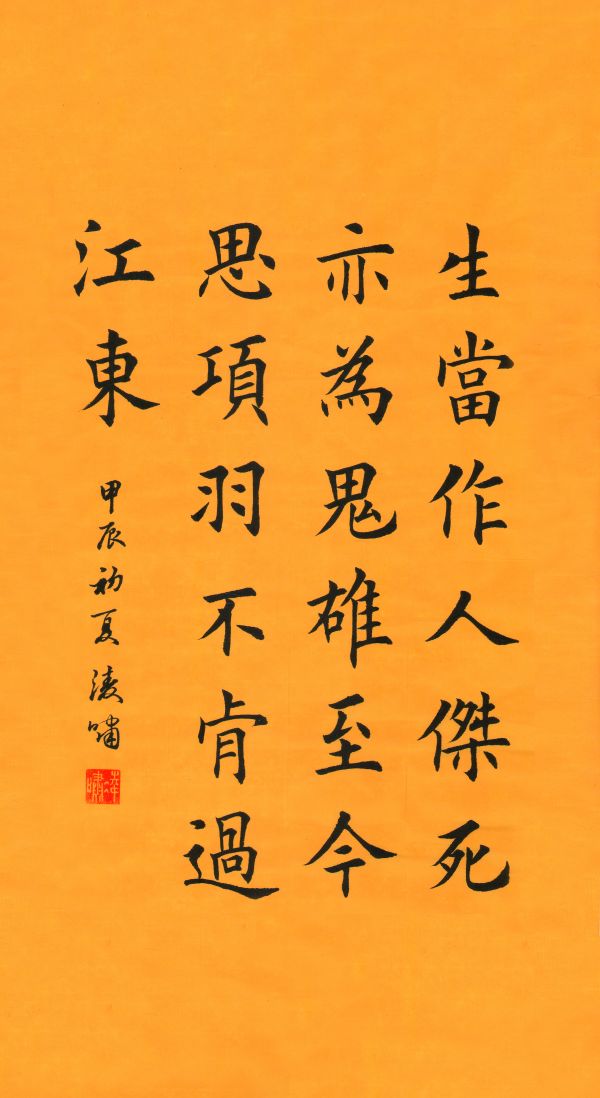 生當作人傑死
亦為鬼雄至今
思項羽不肯過
江東
甲辰初夏淩嘯